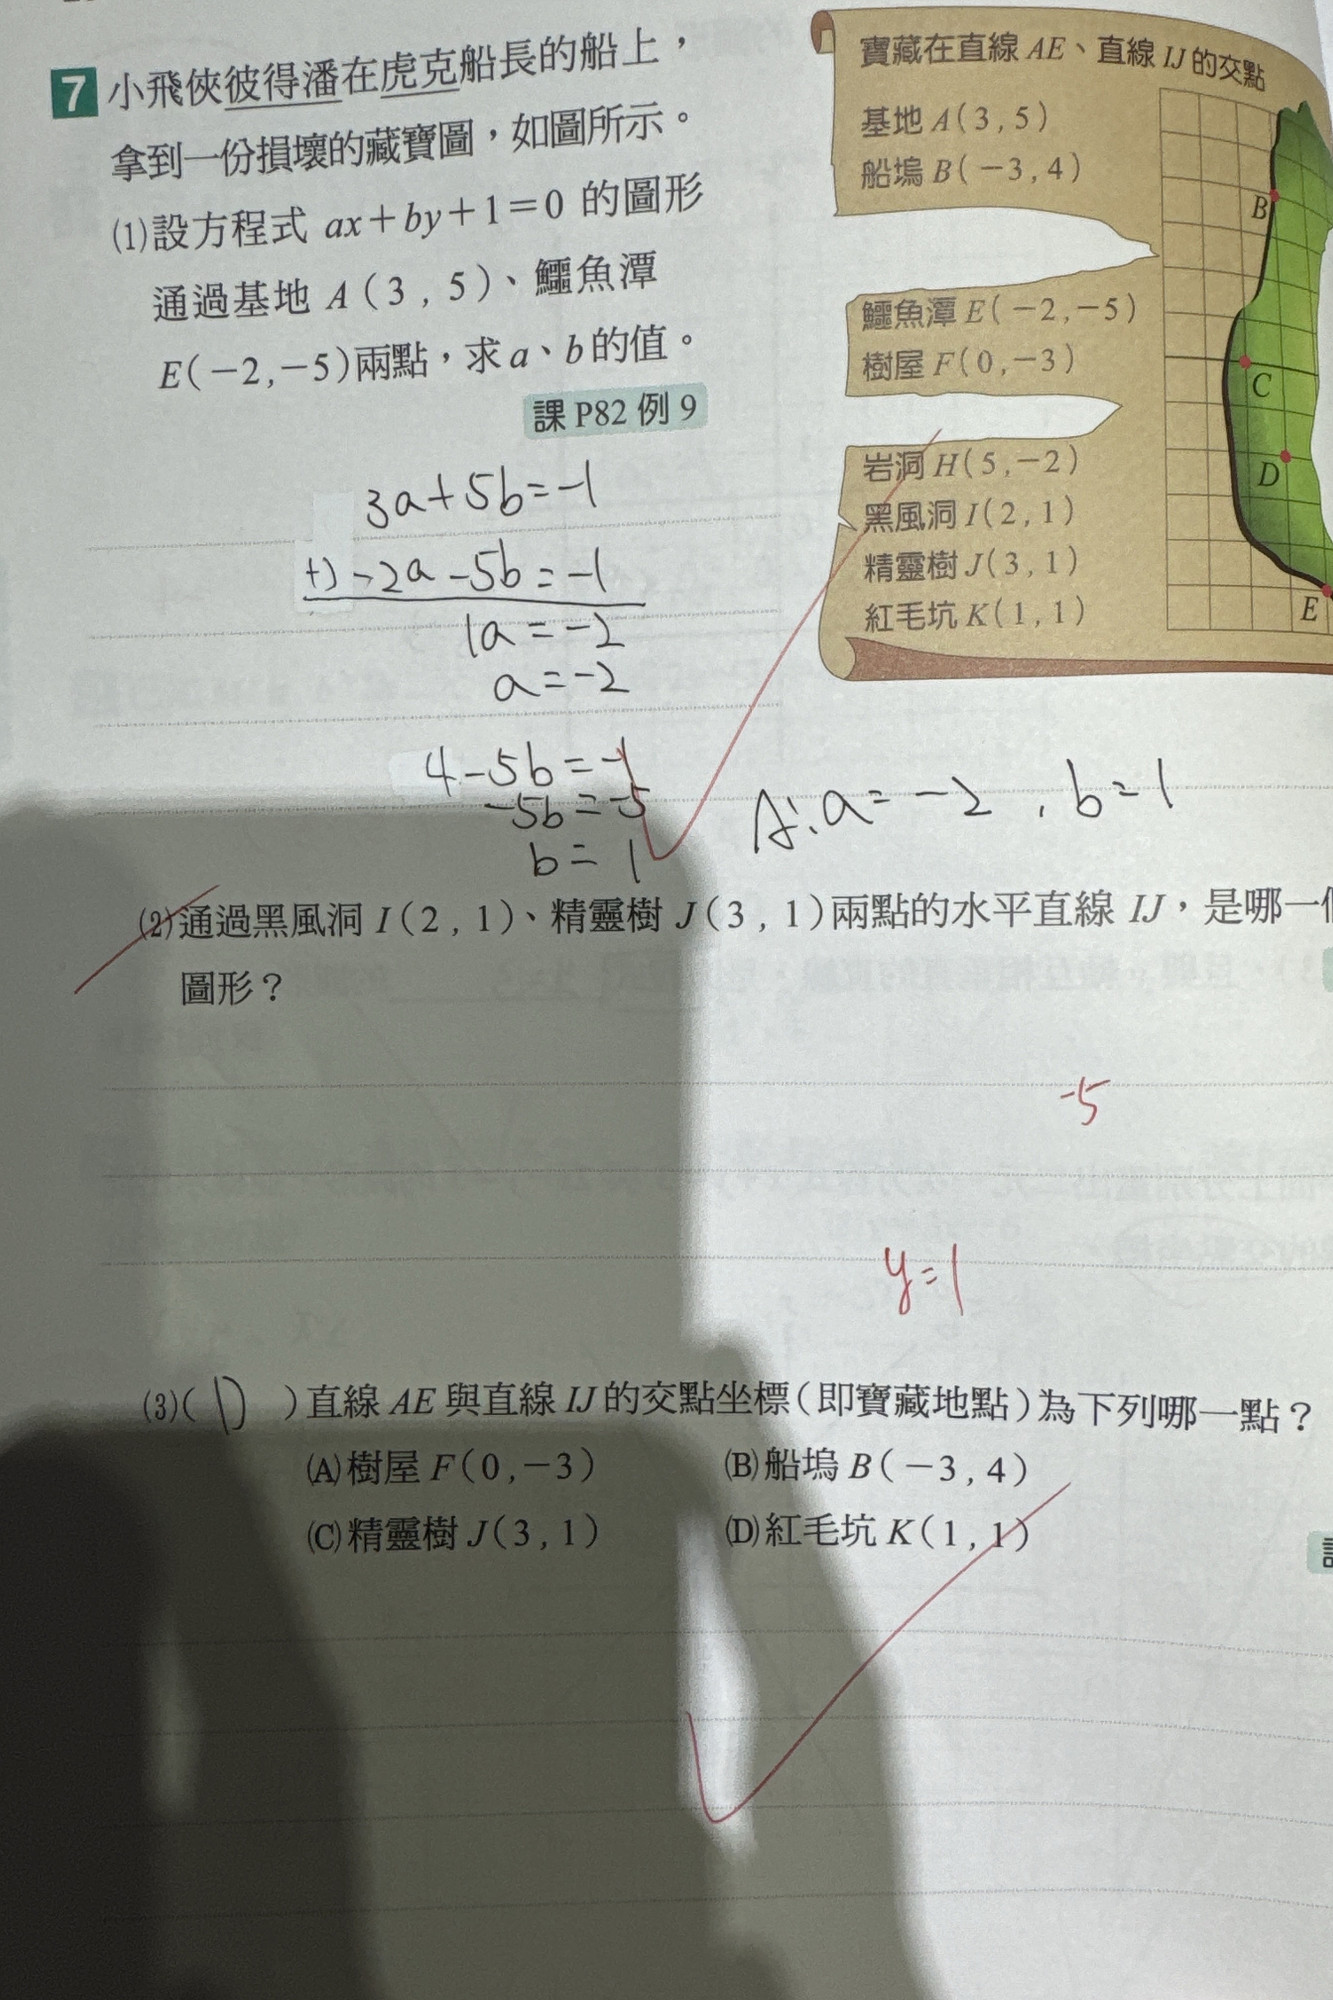 7 小飛俠彼得潘在虎克船長的船上，
拿到一份損壞的藏寶圖，如圖所示。
⑴設方程式 ax＋by＋1＝0 的圖形
通過基地 A（3 , 5）、鱷魚潭
E（－2 ,－5）兩點，求 a、b 的值。
課 P82 例 9
寶藏在直線 AE、直線 IJ 的交點
基地 A（3 , 5）
船塢 B（－3 , 4）
鱷魚潭 E（－2 ,－5）
樹屋 F（0 ,－3）
岩洞 H（5 ,－2）
黑風洞 I（2 , 1）
精靈樹 J（3 , 1）
紅毛坑 K（1 , 1）
B
C
D
E
3a+5b=-1
+) -2a-5b=-1
1a=-2
a=-2
4-5b=-1
-5b=-5
b=1
A:a=-2，b=1
⑵通過黑風洞 I（2 , 1）、精靈樹 J（3 , 1）兩點的水平直線 IJ，是哪一
圖形？
-5
y=1
⑶（D）直線 AE 與直線 IJ 的交點坐標（即寶藏地點）為下列哪一點？
(A)樹屋 F（0 ,－3） (B)船塢 B（－3 , 4）
(C)精靈樹 J（3 , 1） (D)紅毛坑 K（1 , 1）